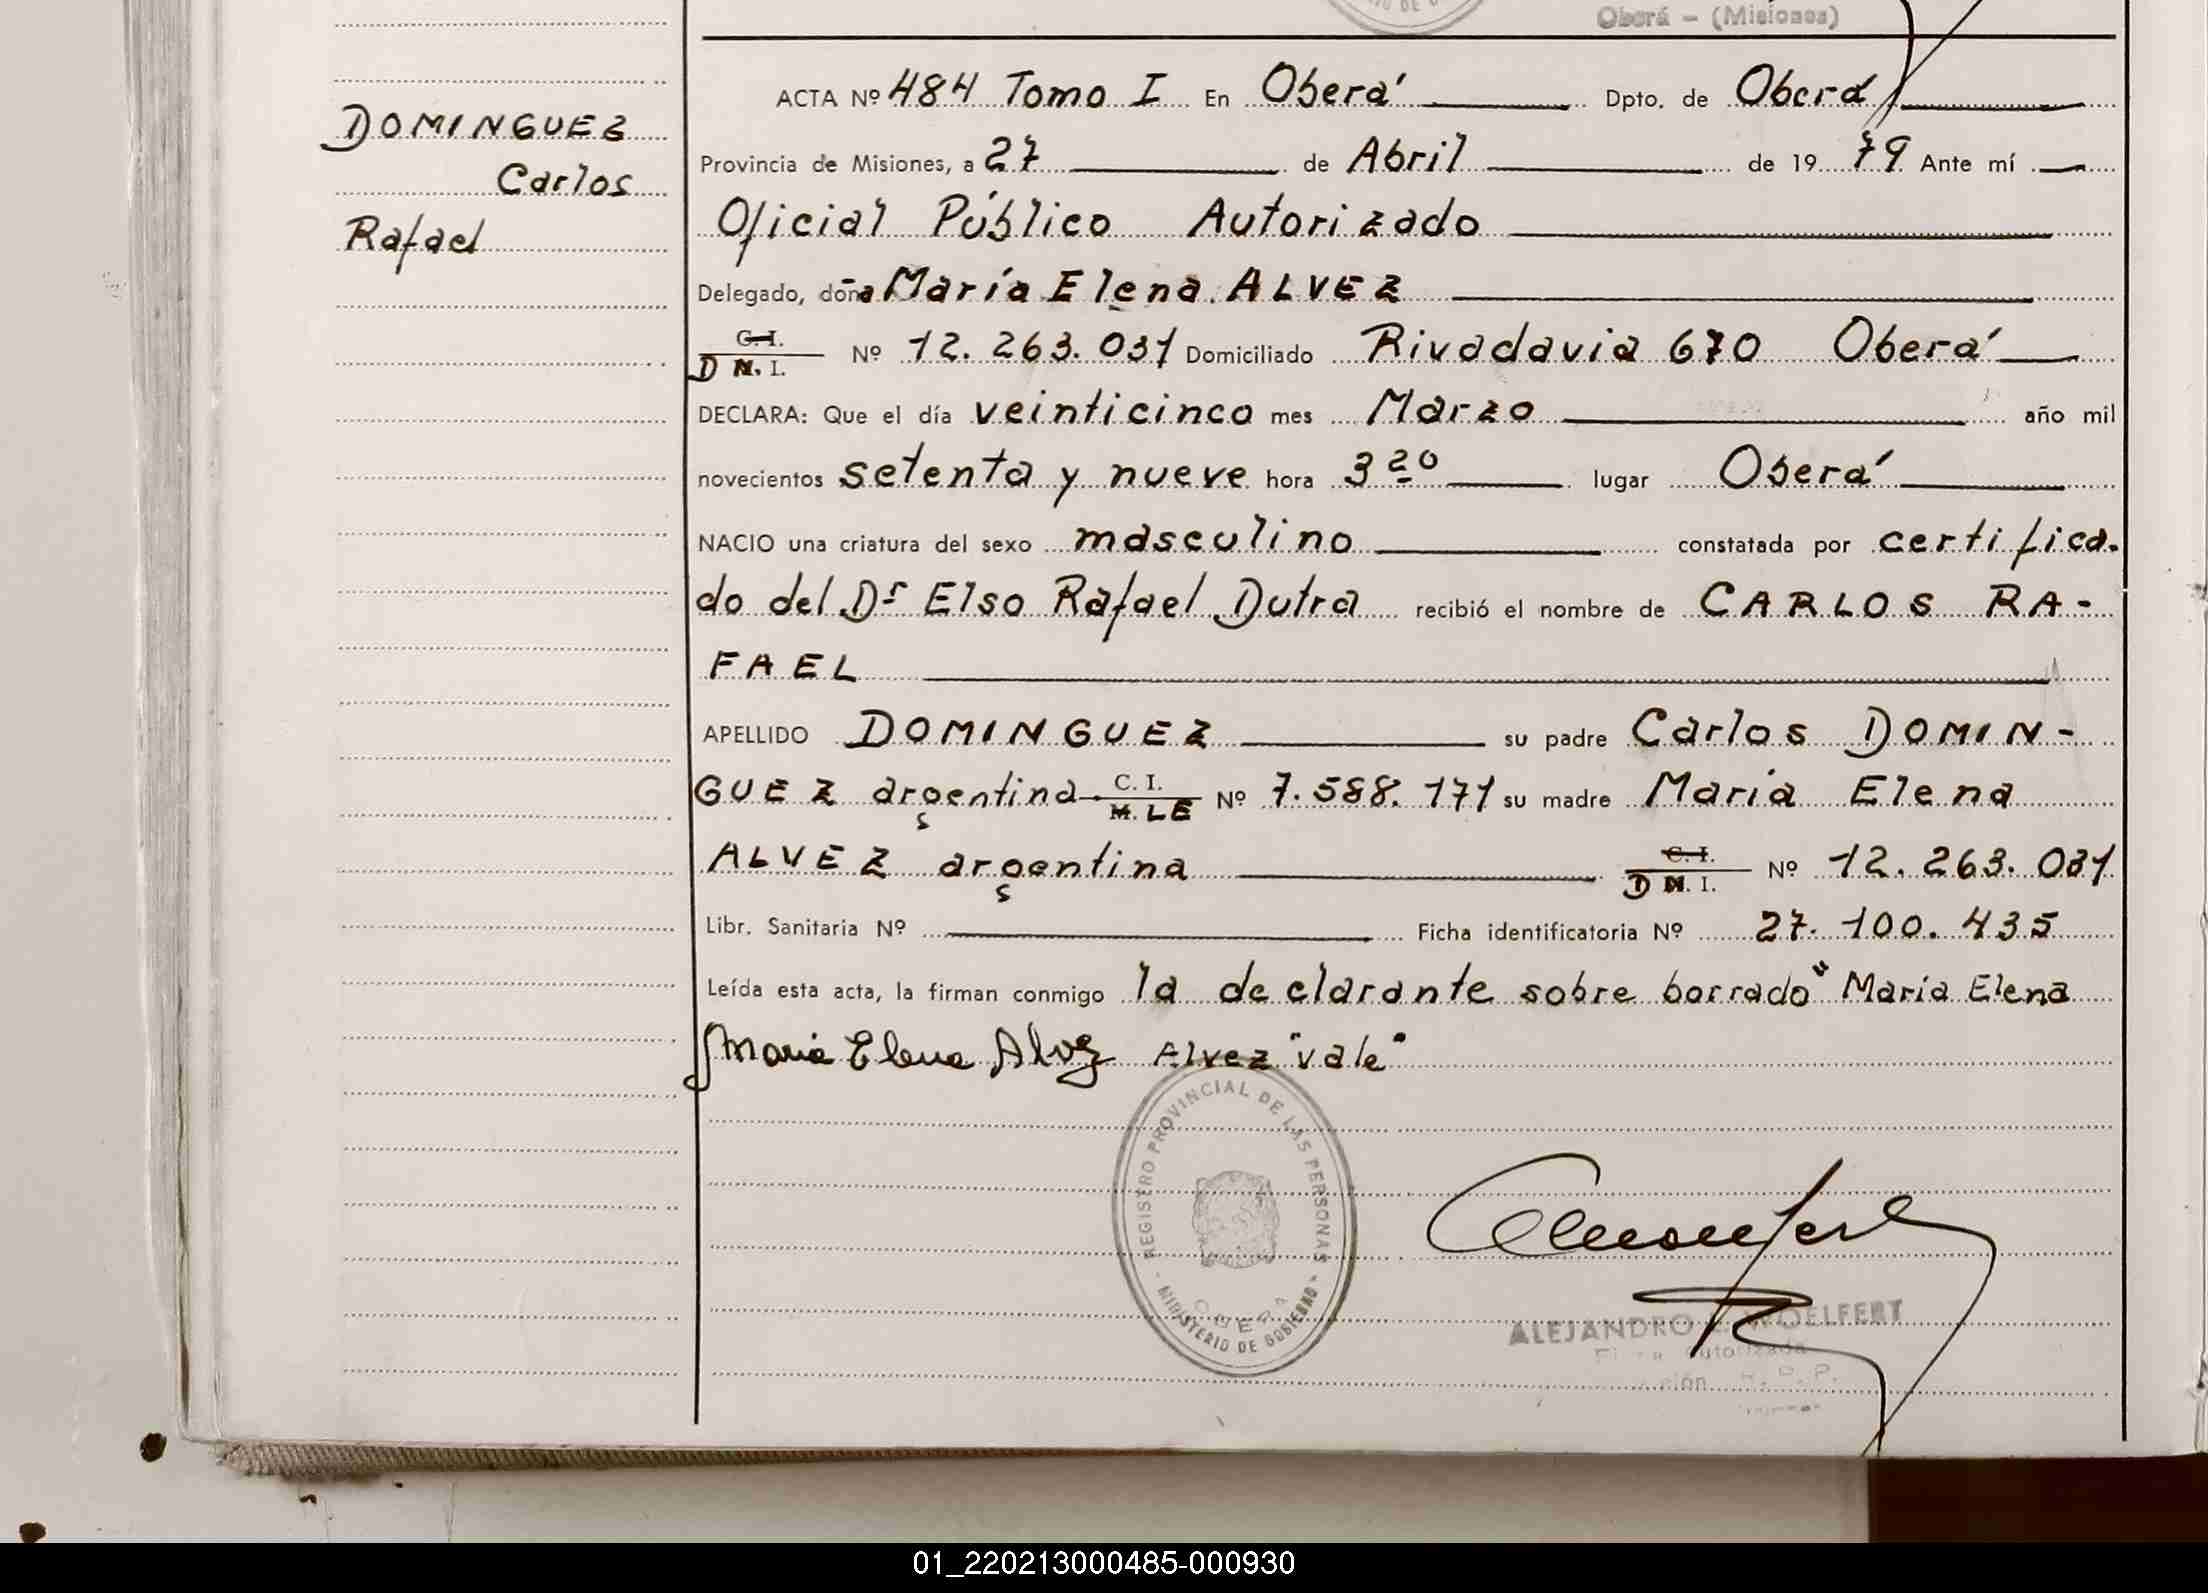 Oberá - (Misiones)
DOMINGUEZ
Carlos
Rafael
ACTA Nº 484 Tomo I En Oberá Dpto. de Oberá
Provincia de Misiones, a 27 de Abril de 19 79 Ante mí
Oficial Público Autorizado
Delegado, doña María Elena ALVEZ
C.I. D N. I. Nº 12.263.031 Domiciliado Rivadavia 670 Oberá
DECLARA: Que el día veinticinco mes Marzo año mil
novecientos setenta y nueve hora 3 20 lugar Oberá
NACIO una criatura del sexo masculino constatada por certifica-
do del Dr Elso Rafael Dutra recibió el nombre de CARLOS RA-
FAEL
APELLIDO DOMINGUEZ su padre Carlos DOMIN-
GUEZ argentina C. I. M. LE Nº 7.588.171 su madre María Elena
ALVEZ argentina C. I. D N. I. Nº 12.263.031
Libr. Sanitaria Nº Ficha identificatoria Nº 27.100.435
Leída esta acta, la firman conmigo la declarante sobre borrado "María Elena
Maria Elena Alvez Alvez "vale"
REGISTRO PROVINCIAL DE LAS PERSONAS
OBERA
- MINISTERIO DE GOBIERNO -
ALEJANDRO WOELFERT
Autorizada
R. P. P.
01_220213000485-000930